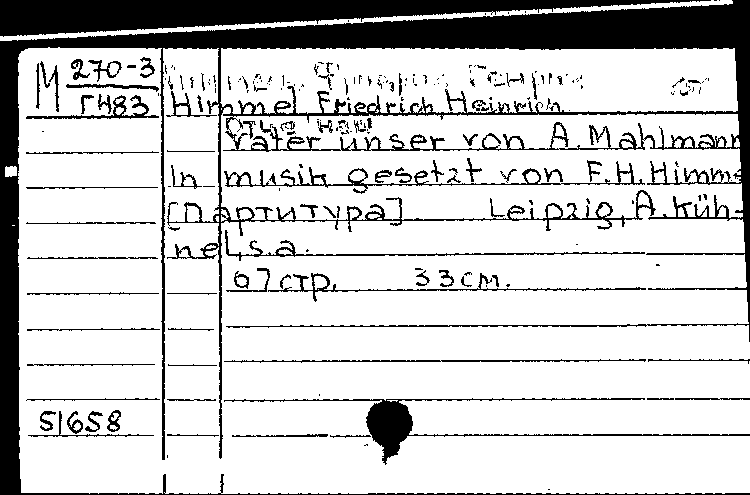 М 270-3
ГИ83
Гиммель, Фридрих Генрих
Himmel, Friedrich, Heinrich
Отче наш
Vater unser von A. Mahlmann
In musik gesetzt von F.H. Himme
[Партитура] Leipzig, A. Küh-
nel, s.a.
67 стр. 33 см.
51658